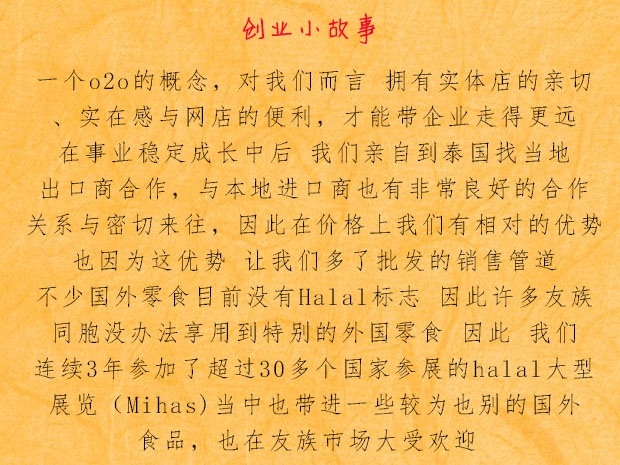 创业小故事
一个o2o的概念，对我们而言 拥有实体店的亲切
、实在感与网店的便利，才能带企业走得更远
在事业稳定成长中后 我们亲自到泰国找当地
出口商合作，与本地进口商也有非常良好的合作
关系与密切来往，因此在价格上我们有相对的优势
也因为这优势 让我们多了批发的销售管道
不少国外零食目前没有Halal标志 因此许多友族
同胞没办法享用到特别的外国零食 因此 我们
连续3年参加了超过30多个国家参展的halal大型
展览（Mihas)当中也带进一些较为也别的国外
食品，也在友族市场大受欢迎